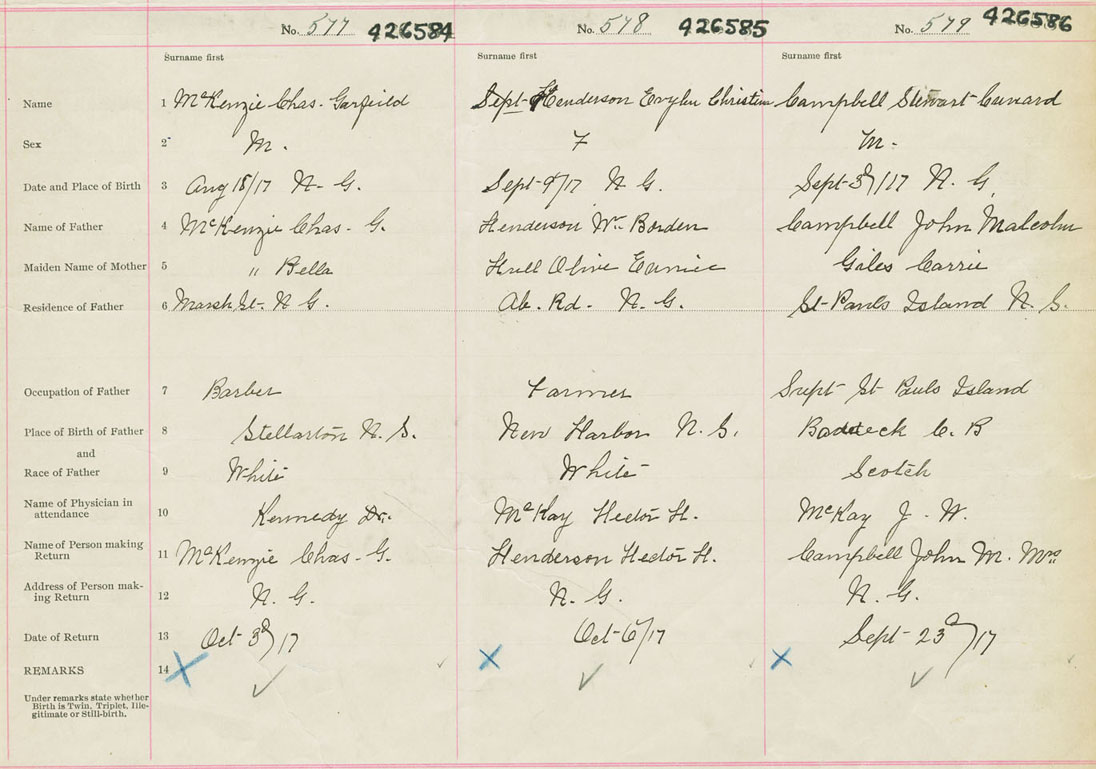 No. 577 426584 No. 578 426585 No. 579 426586
Surname first Surname first Surname first
Name 1 McKenzie Chas. Garfeild Sept 9 Henderson Evyln Christine Campbell Stewart Cunard
Sex 2 M. F M.
Date and Place of Birth 3 Aug 18/17 N. G. Sept 9/17 N G. Sept 3d/17 N. G.
Name of Father 4 McKenzie Chas. G. Henderson Wm Borden Campbell John Malcolm
Maiden Name of Mother 5 " Bella Olive Eunice Giles Carrie
Residence of Father 6 Marsh St. N G. Ab. Rd. N. G. St Pauls Island N. S.
Occupation of Father 7 Barber Farmer Supt St Pauls Island
Place of Birth of Father 8 Stellarton N. S. New Harbor N. S. Baddeck C. B
and
Race of Father 9 White White Scotch
Name of Physician in
attendance 10 Kennedy Dr. McKay Hector H. McKay J. W.
Name of Person making
Return 11 McKenzie Chas. G. Henderson Hector H. Campbell John M. Mrs
Address of Person mak-
ing Return 12 N. G. N. G. N. G.
Date of Return 13 Oct 3d/17 Oct 6/17 Sept 23d/17
REMARKS 14
Under remarks state whether
Birth is Twin, Triplet, Ille-
gitimate or Still-birth.